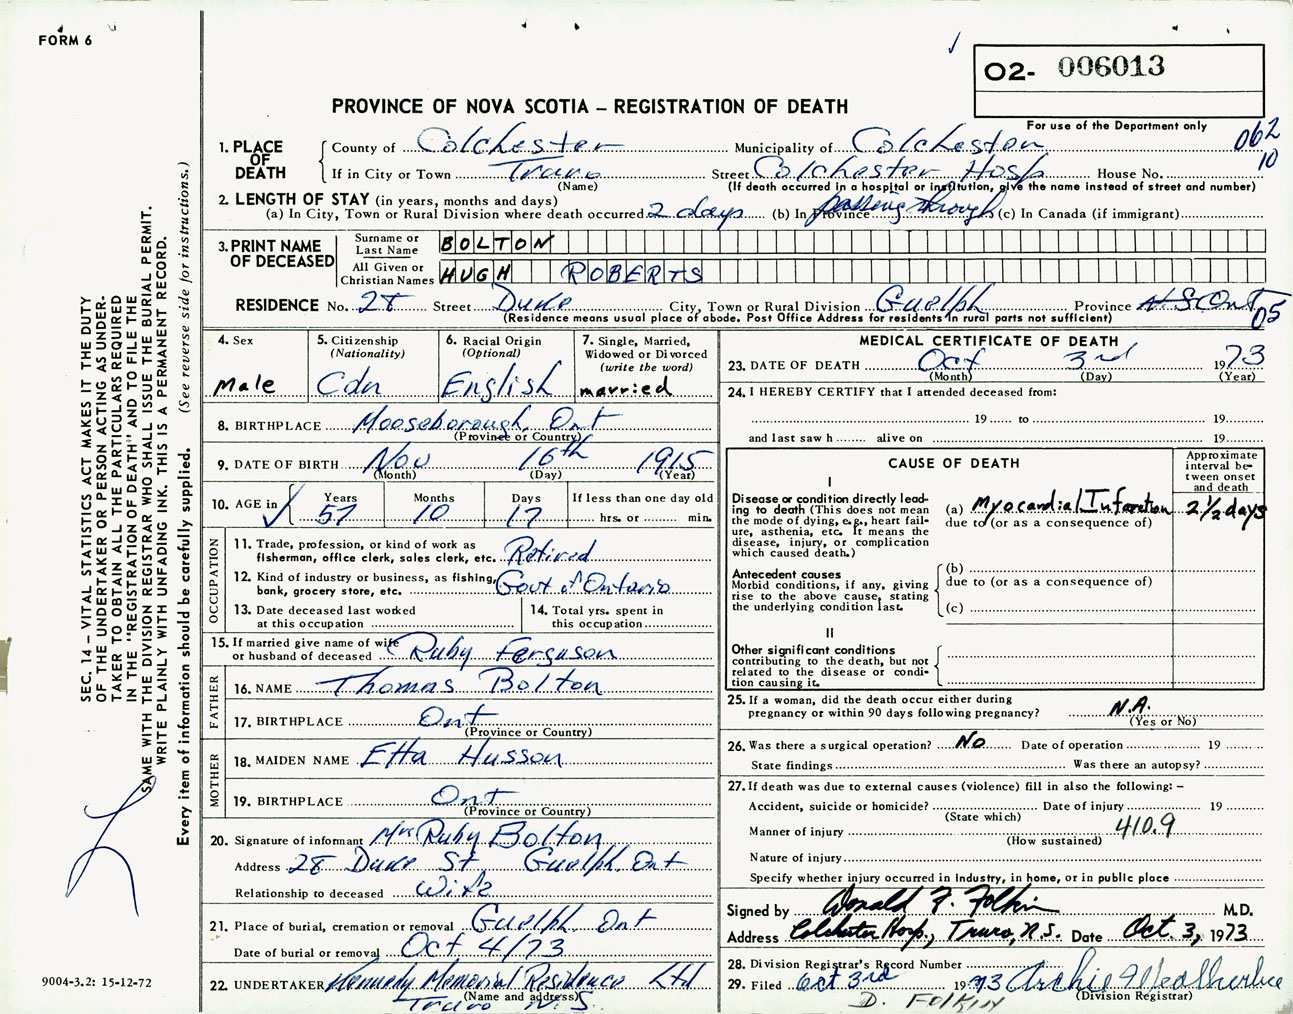 FORM 6
O2- 006013
PROVINCE OF NOVA SCOTIA – REGISTRATION OF DEATH
For use of the Department only
062
10
1. PLACE OF DEATH
County of Colchester Municipality of Colchester
If in City or Town Truro Street Colchester Hosp House No.
(Name) (If death occurred in a hospital or institution, give the name instead of street and number)
2. LENGTH OF STAY (in years, months and days)
(a) In City, Town or Rural Division where death occurred 2 days (b) In Province passing through (c) In Canada (if immigrant)
3. PRINT NAME OF DECEASED
Surname or Last Name BOLTON
All Given or Christian Names HUGH ROBERTS
RESIDENCE No. 28 Street Duke City, Town or Rural Division Guelph Province N.S Ont
(Residence means usual place of abode. Post Office Address for residents in rural parts not sufficient)
05
4. Sex
Male
5. Citizenship
(Nationality)
Cdn
6. Racial Origin
(Optional)
English
7. Single, Married,
Widowed or Divorced
(write the word)
married
8. BIRTHPLACE Mooseborough, Ont
(Province or Country)
9. DATE OF BIRTH Nov 16th 1915
(Month) (Day) (Year)
10. AGE in Years Months Days If less than one day old
57 10 17 hrs. or min.
OCCUPATION
11. Trade, profession, or kind of work as
fisherman, office clerk, sales clerk, etc. Retired
12. Kind of industry or business, as fishing,
bank, grocery store, etc. Govt of Ontario
13. Date deceased last worked
at this occupation
14. Total yrs. spent in
this occupation
15. If married give name of wife
or husband of deceased Ruby Ferguson
FATHER
16. NAME Thomas Bolton
17. BIRTHPLACE Ont
(Province or Country)
MOTHER
18. MAIDEN NAME Etta Husson
19. BIRTHPLACE Ont
(Province or Country)
20. Signature of informant Mrs Ruby Bolton
Address 28 Duke St Guelph, Ont
Relationship to deceased Wife
21. Place of burial, cremation or removal Guelph, Ont
Date of burial or removal Oct 4/73
22. UNDERTAKER Kennedy Memorial Residence Ltd
(Name and address)
Truro N.S.
MEDICAL CERTIFICATE OF DEATH
23. DATE OF DEATH Oct 3rd 1973
(Month) (Day) (Year)
24. I HEREBY CERTIFY that I attended deceased from:
19 to 19
and last saw h alive on 19
CAUSE OF DEATH
Approximate
interval be-
tween onset
and death
I
Disease or condition directly lead-
ing to death (This does not mean
the mode of dying, e.g., heart fail-
ure, asthenia, etc. It means the
disease, injury, or complication
which caused death.)
(a) Myocardial Infarction 2 1/2 days
due to (or as a consequence of)
Antecedent causes
Morbid conditions, if any, giving
rise to the above cause, stating
the underlying condition last.
(b)
due to (or as a consequence of)
(c)
II
Other significant conditions
contributing to the death, but not
related to the disease or condi-
tion causing it.
25. If a woman, did the death occur either during
pregnancy or within 90 days following pregnancy? N.A.
(Yes or No)
26. Was there a surgical operation? No Date of operation 19
State findings Was there an autopsy?
27. If death was due to external causes (violence) fill in also the following: –
Accident, suicide or homicide? Date of injury 19
(State which)
Manner of injury 410.9
(How sustained)
Nature of injury
Specify whether injury occurred in Industry, in home, or in public place
Signed by Donald F. Folkin M.D.
Address Colchester Hosp., Truro, N.S. Date Oct. 3, 1973
28. Division Registrar's Record Number
29. Filed Oct 3rd 1973 Archie Weatherbee
(Division Registrar)
D. FOLKIN
SEC. 14 – VITAL STATISTICS ACT MAKES IT THE DUTY
OF THE UNDERTAKER OR PERSON ACTING AS UNDER-
TAKER TO OBTAIN ALL THE PARTICULARS REQUIRED
IN THE "REGISTRATION OF DEATH" AND TO FILE THE
SAME WITH THE DIVISION REGISTRAR WHO SHALL ISSUE THE BURIAL PERMIT.
WRITE PLAINLY WITH UNFADING INK. THIS IS A PERMANENT RECORD.
Every item of information should be carefully supplied. (See reverse side for instructions.)
9004-3.2: 15-12-72